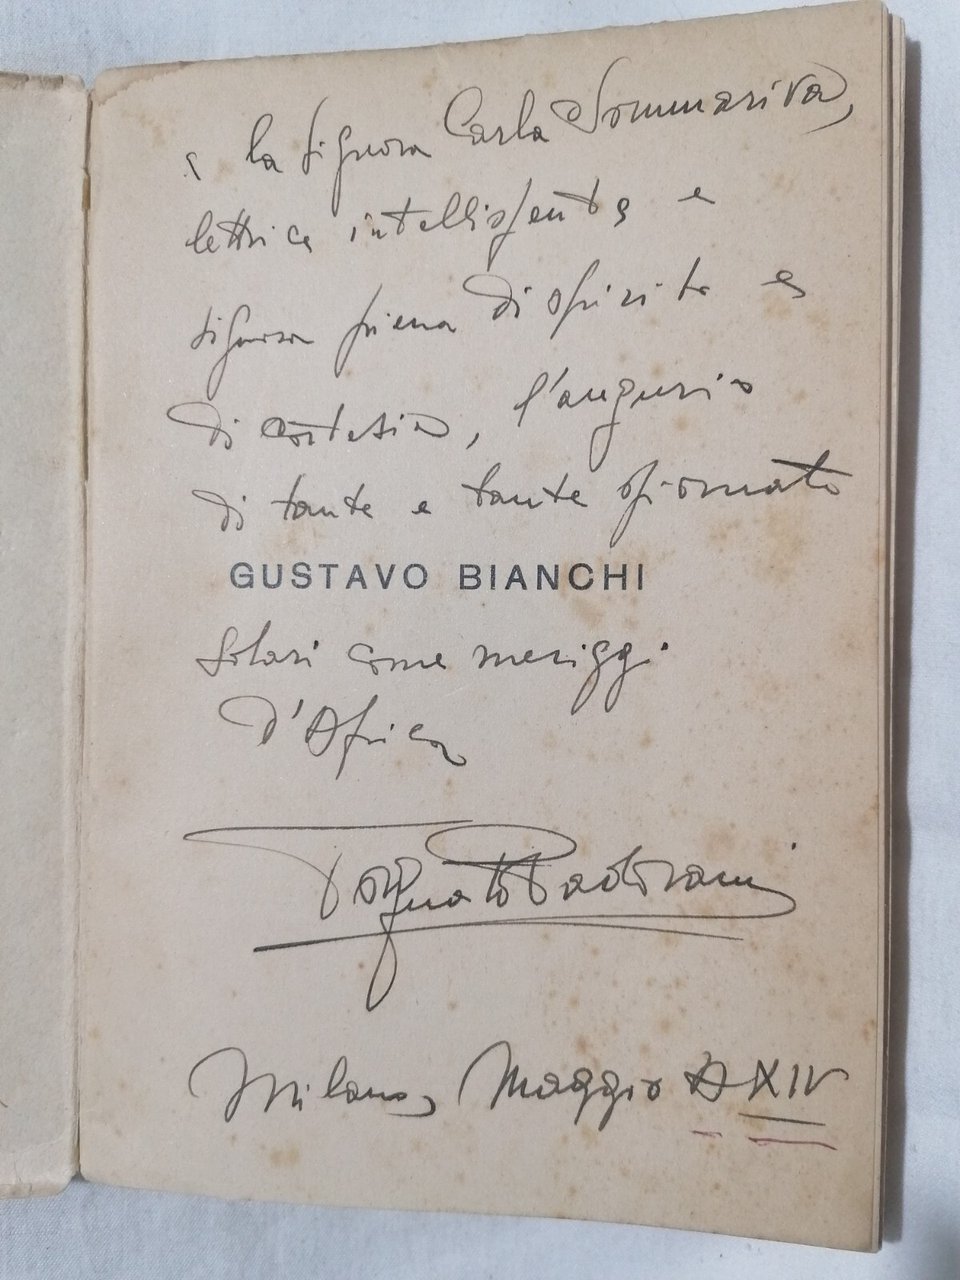 a la Signora Carla Sommariva,
lettrice intelligente e
signora piena di spirito e
di cortesia, l'augurio
di tante e tante giornate
GUSTAVO BIANCHI
solari come meriggi
d'Africa
Milano, Maggio A XIV